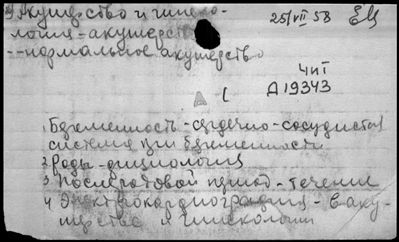 Акушерство и гинеко-
логия - акушерство
-- нормальное акушерство
25/VII 58
ЧИТ
Д 19343
А
1. Беременность - сердечно-сосудистая
система при беременности
2. Роды - физиология
3 Послеродовой период - течение
4 Электрокардиография - в аку-
шерстве и гинекологии